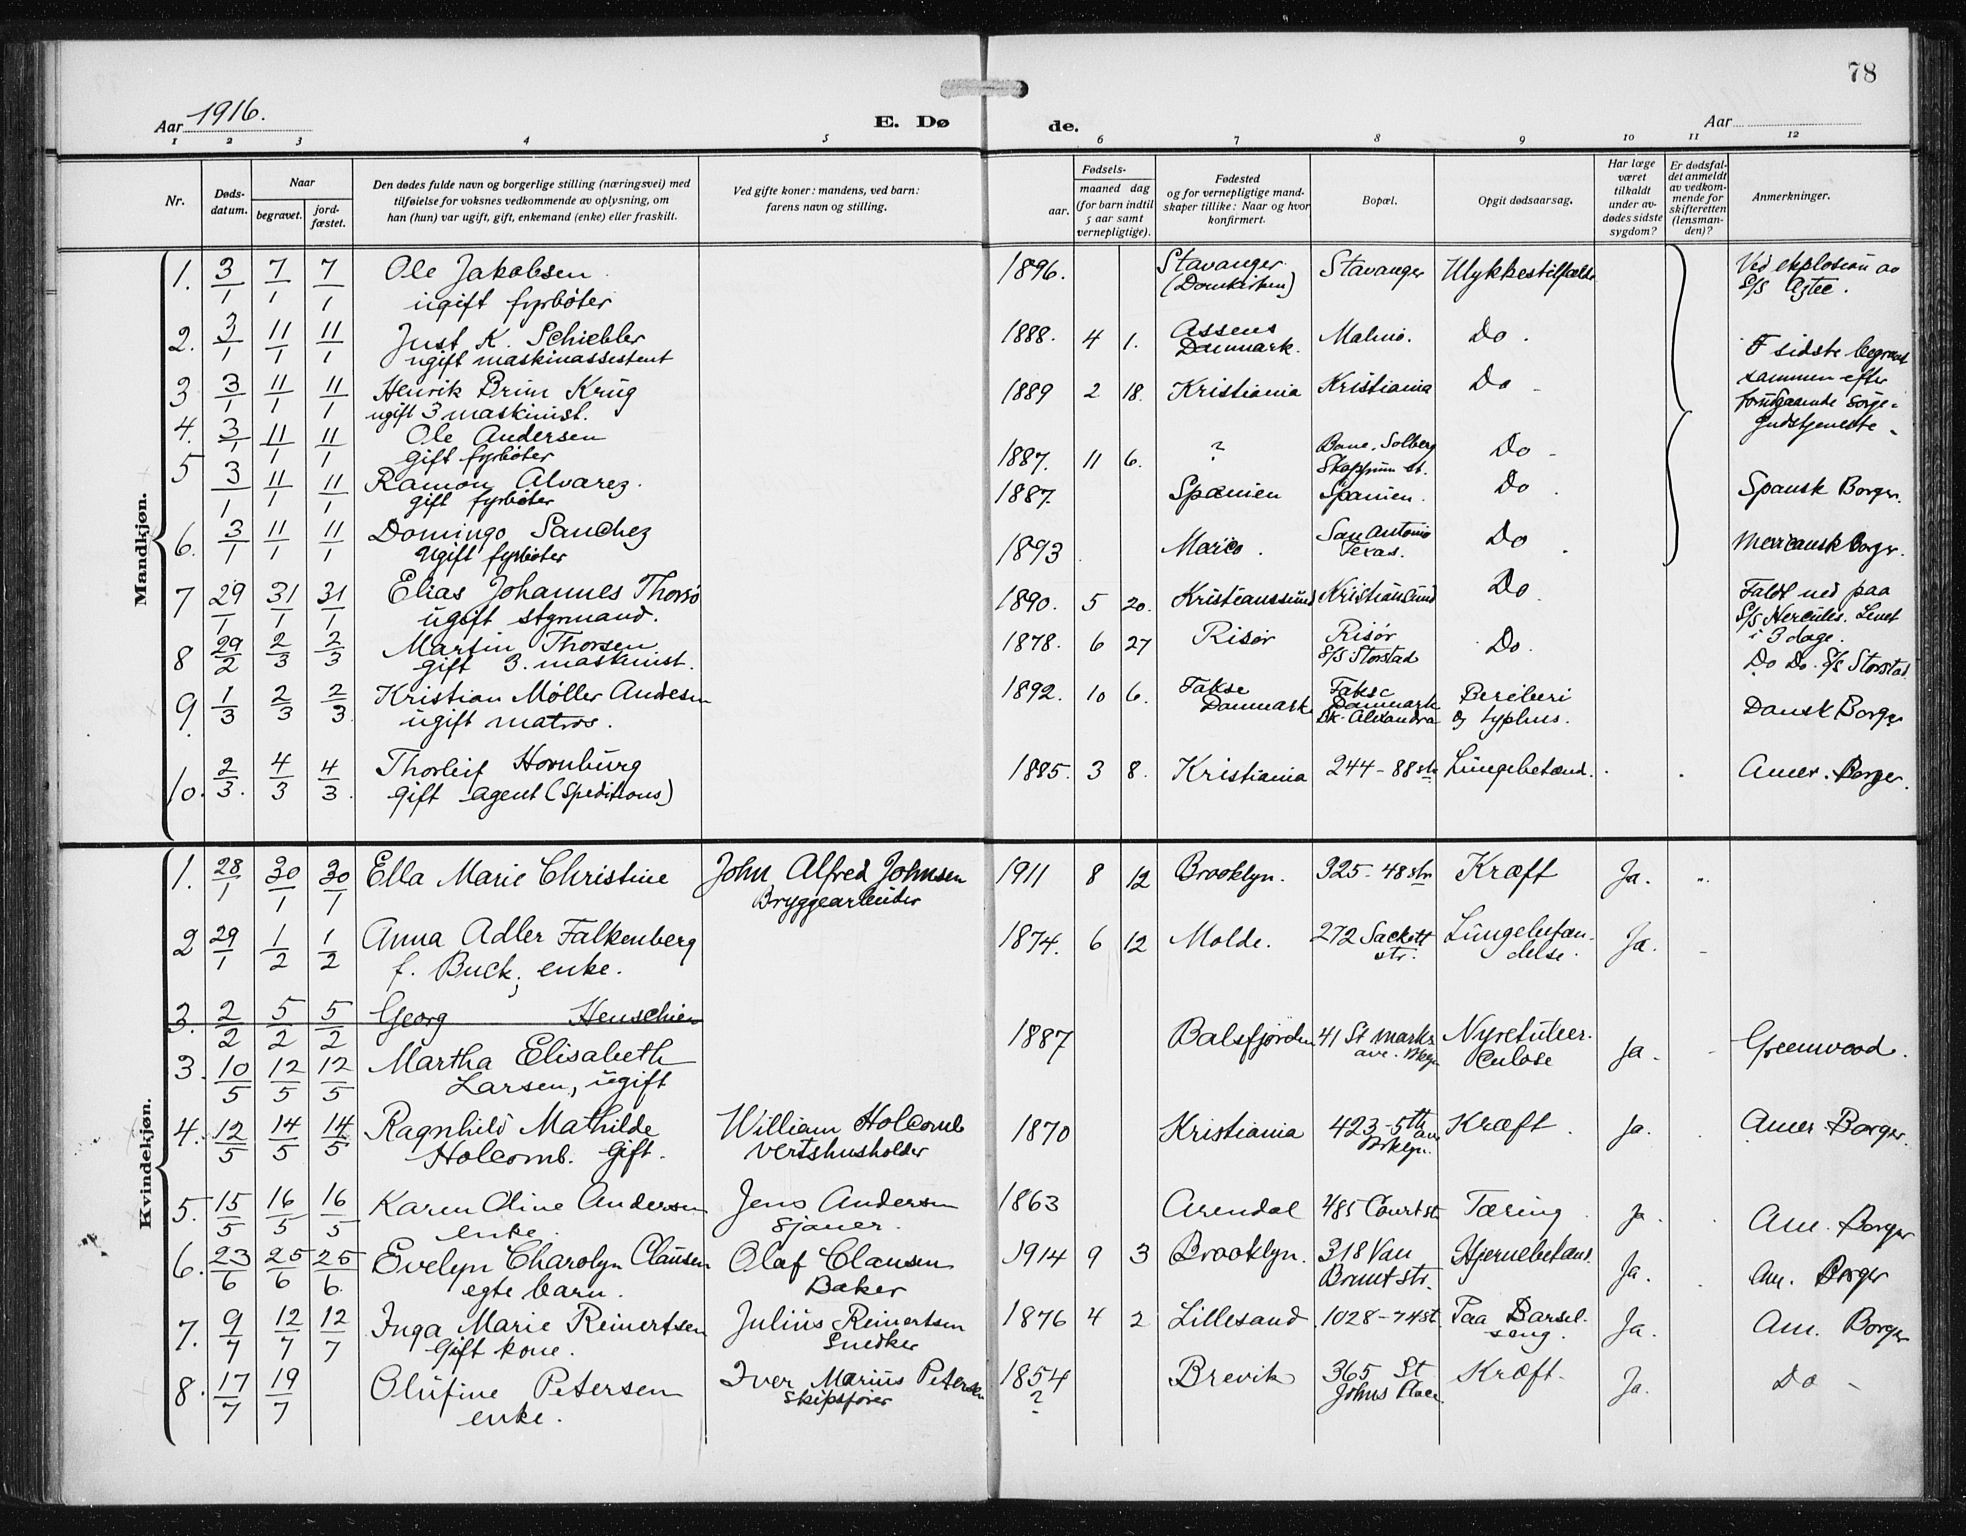 78
Aar 1916.
E. Dø de.
Aar
1 2 3 4 5 6 7 8 9 10 11 12
Nr.
Døds-
datum.
Naar
begravet.
jord-
fæstet.
Den dødes fulde navn og borgerlige stilling (næringsvei) med
tilføielse for voksnes vedkommende av oplysning, om
han (hun) var ugift, gift, enkemand (enke) eller fraskilt.
Ved gifte koner: mandens, ved barn:
farens navn og stilling.
Fødsels-
aar.
maaned dag
(for barn indtil
5 aar samt
vernepligtige).
Fødested
og for vernepligtige mand-
skaper tillike: Naar og hvor
konfirmert.
Bopæl.
Opgit dødsaarsag.
Har læge
været
tilkaldt
under av-
dødes sidste
sygdom?
Er dødsfal-
det anmeldt
av vedkom-
mende for
skifteretten
(lensman-
den)?
Anmerkninger.
Mandkjøn.
1. 3/1 7/1 7/1 Ole Jakobsen 1896. Stavanger Stavanger Ulykkestilfælde Ved explosion av
ugift fyrbøter (Domkirken) S/S Aztec.
2. 3/1 11/1 11/1 Just K. Schiebler 1888. 4 1. Assens Malmø. Do.
ugift maskinassistent Danmark.
5 sidste begravet
3 3/1 11/1 11/1 Henrik Prim Krug 1889 2 18. Kristiania Kristiania Do sammen efter
ugift 3 maskinist. forutgaaende sørge-
4. 3/1 11/1 11/1 Ole Andersen 1887. 11 6. ? Solberg Do gudstjeneste.
gift fyrbøter
5 3/1 11/1 11/1 Ramon Alvarez. 1887. Spanien Spanien. Do. Spansk Borger.
gift fyrbøter
6. 3/1 11/1 11/1 Domingo Sanchez 1893. San Antonio Do. Mexicansk Borger.
Ugift fyrbøter Texas.
7 29/1 31/1 31/1 Elias Johannes Thorsø 1890. 5 20. Kristianssund Kristianssund Do Faldt ned paa
ugift styrmand. S/S Hercules. Levet
i 3 dage.
8 29/2 2/3 2/3 Martin Thorsen 1878. 6 27 Risør Risør Do. Do Do. S/S Storstad
gift 3. maskinist. S/S Storstad
9. 1/3 2/3 2/3 Kristian Møller Andersen 1892. 10 6. Fakse Fakse Beriberi Dansk Borger
ugift matros. Danmark Danmark og typhus.
Bk. Alexandra
10. 2/3. 4/3 4/3. Thorleif Hornburg 1885. 3 8. Kristiania 244-88 str Lungebetænd. Amer. Borger.
gift agent (Speditions)
Kvindekjøn.
1. 28/1 30/1 30/1 Ella Marie Christine John Alfred Johnsen 1911 8 12 Brooklyn. 325-48 str Kræft Ja. "
Bryggearbeider
2 29/1 1/2 1/2 Anna Adler Falkenberg 1874. 6 12 Molde. 272 Sackett Lungebetæn- Ja.
f. Buck, enke. str. delse.
3. 2/2 5/2 5/2 Georg Henschien
3. 10/5 12/5 12/5 Martha Elisabeth 1887 Balsfjorden 41 St Marks Nyretuber- Ja. Greenwood.
Larsen, ugift ave. Bklyn culose
4. 12/5 14/5 14/5 Ragnhild Mathilde William Holcomb 1870 Kristiania 423-5th Kræft. Ja. Amer. Borger.
Holcomb. Gift. Vertshusholder ave Brklyn.
5. 15/5 16/5 16/5 Karen Oline Andersen Jens Andersen 1863 Arendal 485 Court str Tæring Ja. Am. Borger
enke. Sjauer.
6. 23/6 25/6 25/6. Evelyn Charolyn Clausen Olaf Clausen 1914 9 3 Brooklyn. 318 Van Hjernebetænd. Ja. Am. Borger
egte barn. Baker Brunt str.
7. 9/7 12/7 12/7 Inga Marie Reinertsen Julius Reinertsen 1876 4 2 Lillesand 1028-74 st. Paa Barsel- Ja. Am. Borger
Gift kone. Snedker seng.
8. 17/7 19/7 Olufine Petersen Iver Marius Petersen 1854 Brevik 365 St Kræft. Ja. Do
enke. Skipsfører ? Johns Place